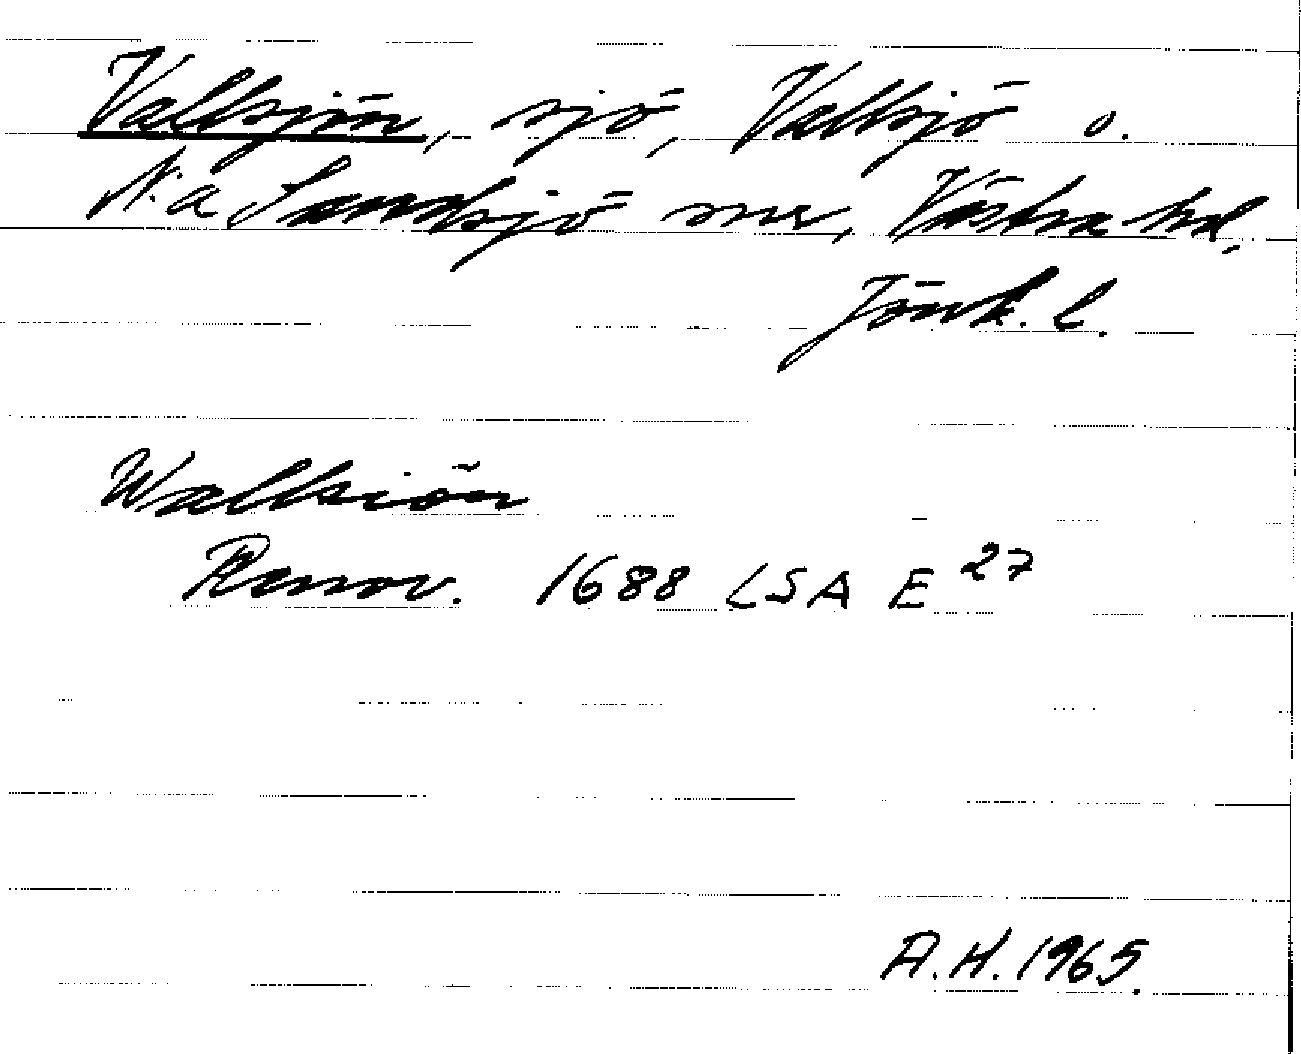 Vallsjön, sjö, Vallsjö o.
N:a Sandsjö snr, Västra hd,
Jönk. l.
Wallsiön
Renov. 1688 LSA E 27
A.H. 1965.